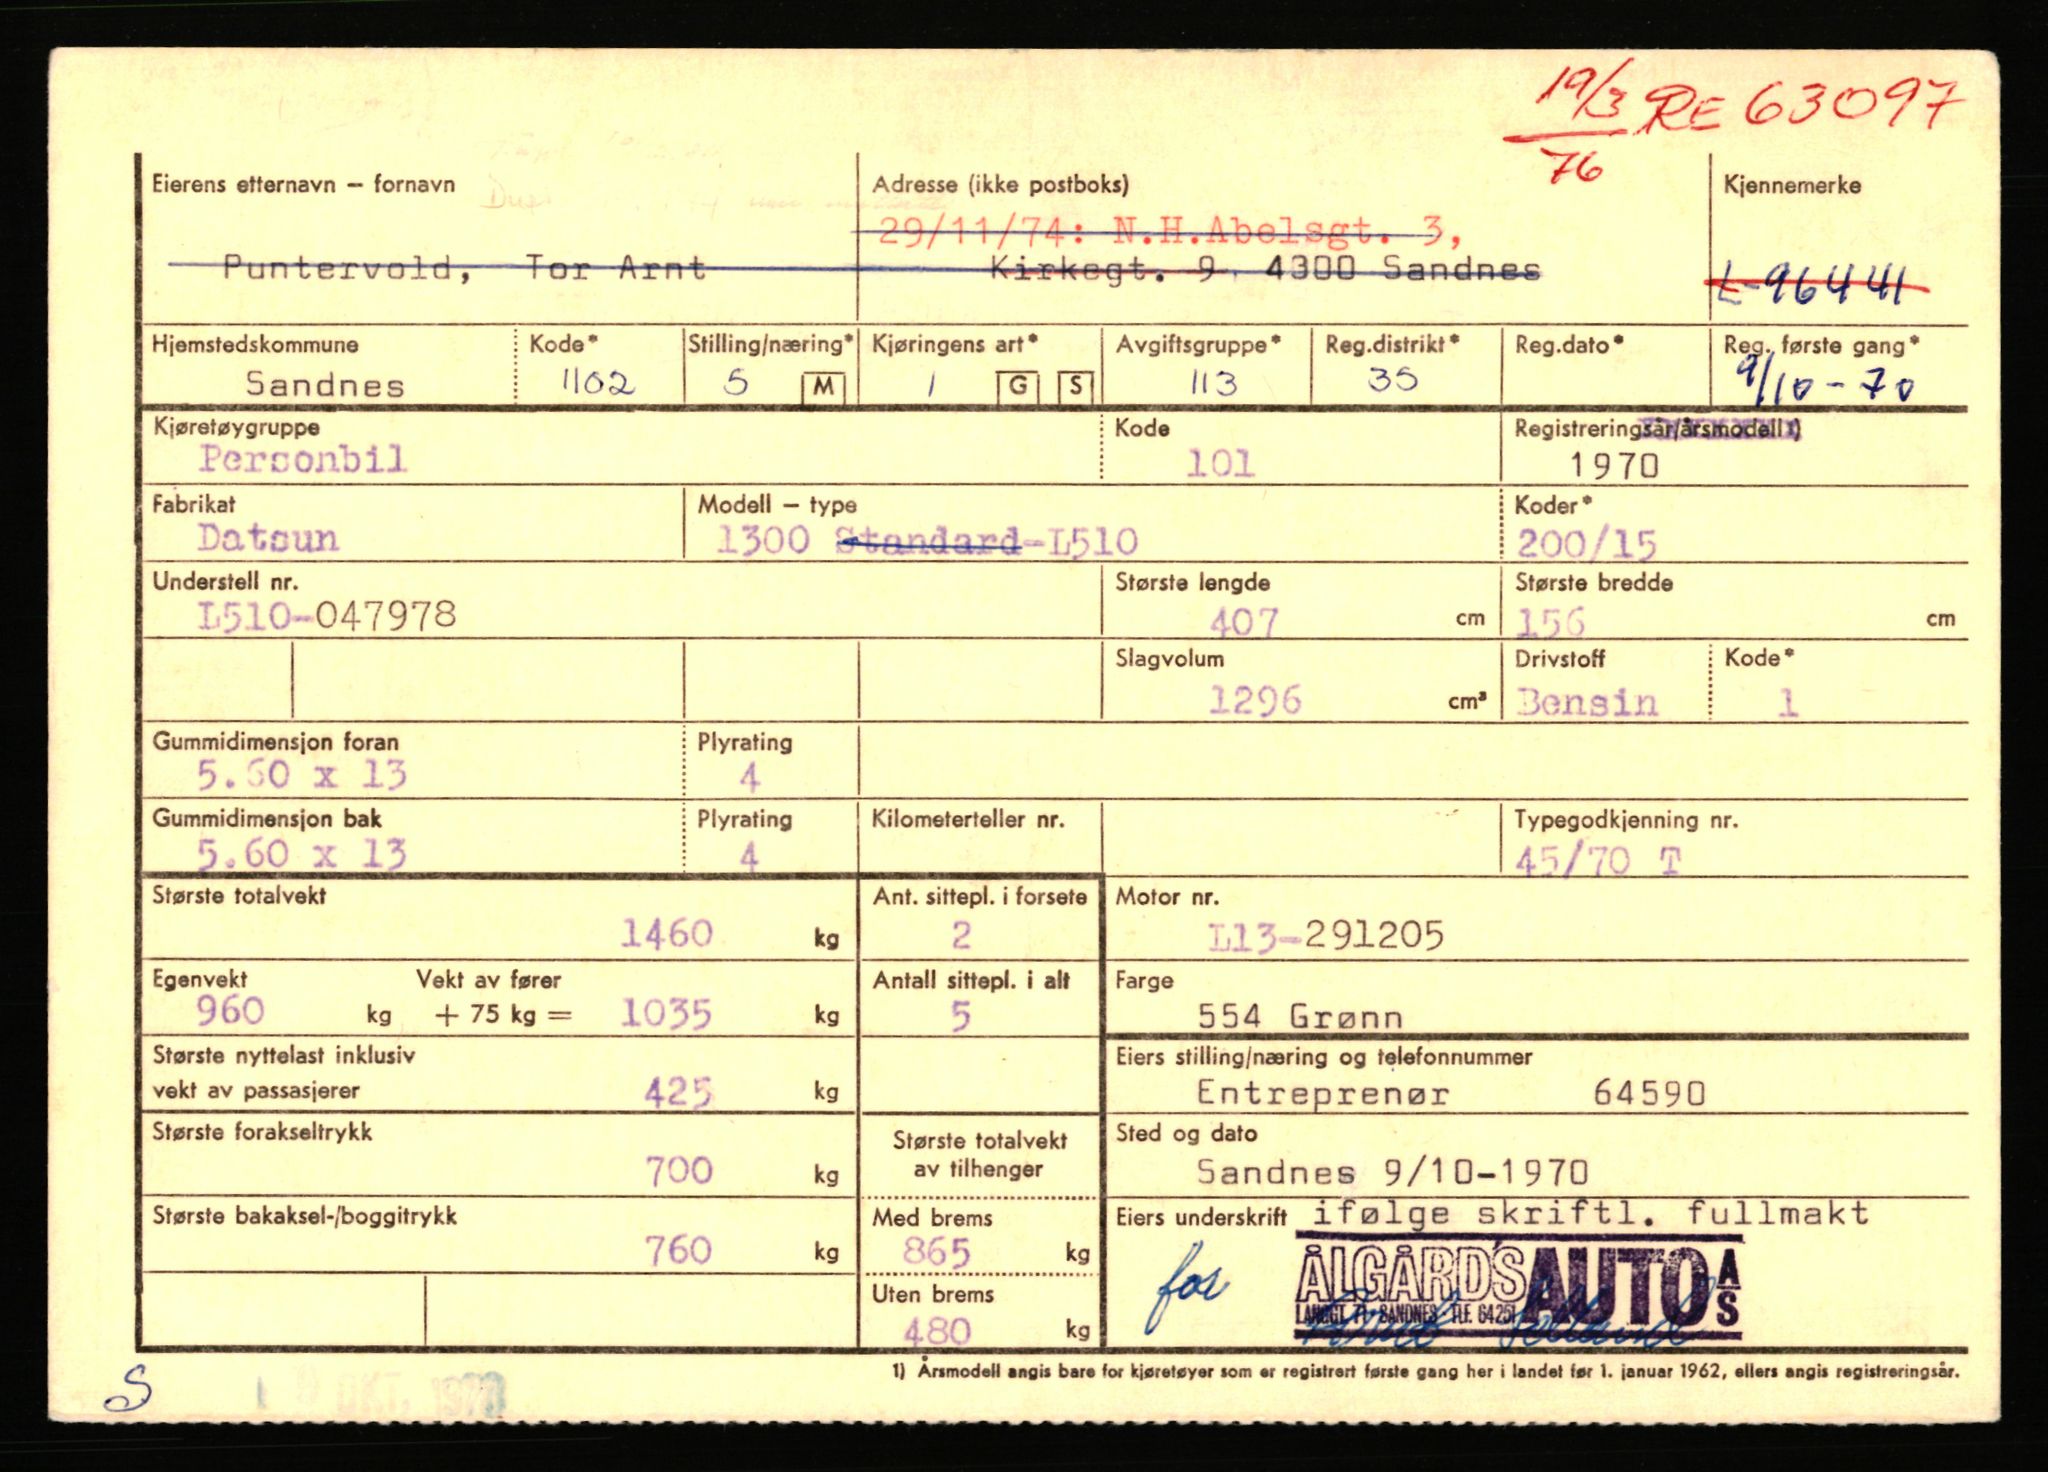 19/3 RE 63097
76
Eierens etternavn – fornavn
Adresse (ikke postboks)
Kjennemerke
29/11/74: N.H.Abelsgt. 3,
Puntervold, Tor Arnt
Kirkegt. 9, 4300 Sandnes
L-96441
Hjemstedskommune Kode* Stilling/næring* Kjøringens art* Avgiftsgruppe* Reg.distrikt* Reg.dato* Reg. første gang*
Sandnes 1102 5 M 1 G S 113 35 9/10-70
Kjøretøygruppe Kode Registreringsår/årsmodell 1)
Personbil 101 1970
Fabrikat Modell – type Koder*
Datsun 1300 Standard-L510 200/15
Understell nr. Største lengde Største bredde
L510-047978 407 cm 156 cm
Slagvolum Drivstoff Kode*
1296 cm³ Bensin 1
Gummidimensjon foran Plyrating
5.60 x 13 4
Gummidimensjon bak Plyrating Kilometerteller nr. Typegodkjenning nr.
5.60 x 13 4 45/70 T
Største totalvekt Ant. sittepl. i forsete Motor nr.
1460 kg 2 L13-291205
Egenvekt Vekt av fører Antall sittepl. i alt Farge
960 kg + 75 kg = 1035 kg 5 554 Grønn
Største nyttelast inklusiv Eiers stilling/næring og telefonnummer
vekt av passasjerer 425 kg Entreprenør 64590
Største forakseltrykk Største totalvekt Sted og dato
700 kg av tilhenger Sandnes 9/10-1970
Største bakaksel-/boggitrykk Med brems Eiers underskrift ifølge skriftl. fullmakt
760 kg 865 kg for ÅLGÅRD'S AUTO A/S
LANGGT. 77 - SANDNES - TLF. 64251
Uten brems
480 kg
1) Årsmodell angis bare for kjøretøyer som er registrert første gang her i landet før 1. januar 1962, ellers angis registreringsår.
S
OKT. 1970